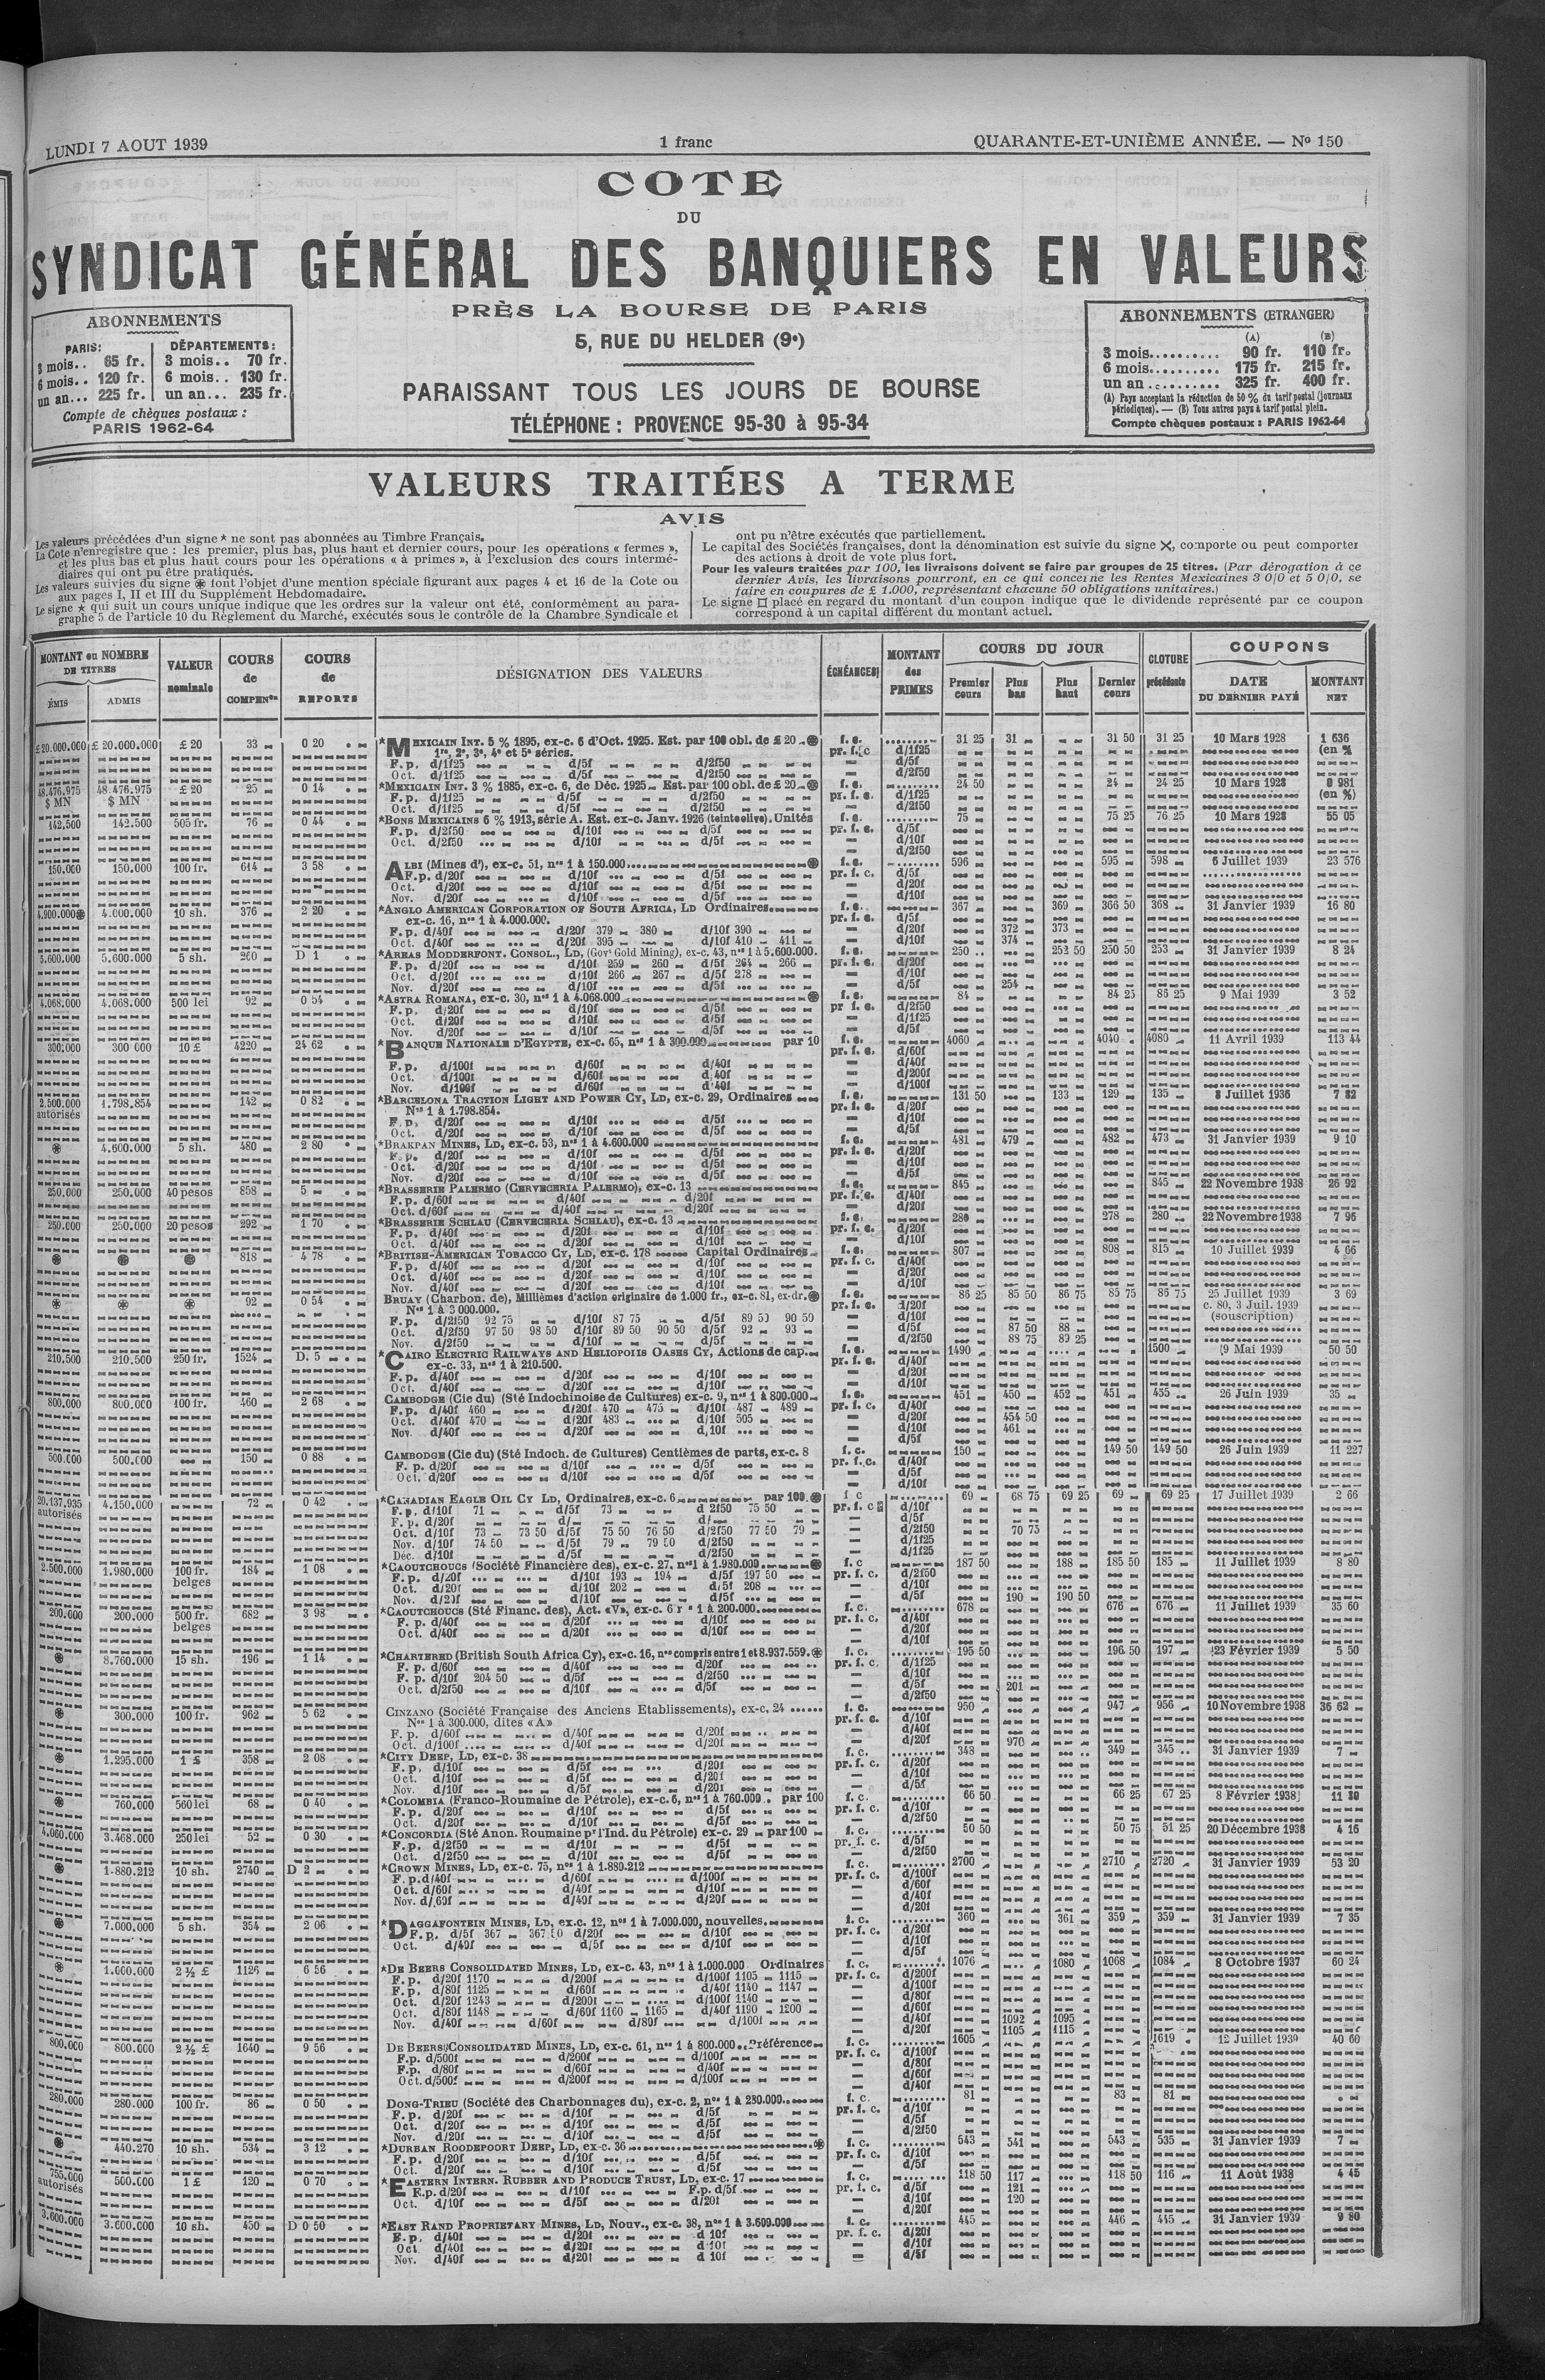 LUNDI 7 AOUT 1939
1 franc
QUARANTE-ET-UNIÈME ANNÉE. — Nº 150
COTE
DU
SYNDICAT GÉNÉRAL DES BANQUIERS EN VALEURS
PRÈS LA BOURSE DE PARIS
5, RUE DU HELDER (9e)
PARAISSANT TOUS LES JOURS DE BOURSE
TÉLÉPHONE : PROVENCE 95-30 à 95-34
ABONNEMENTS
PARIS: DÉPARTEMENTS:
3 mois.. 65 fr. 3 mois.. 70 fr.
6 mois.. 120 fr. 6 mois.. 130 fr.
un an... 225 fr. un an... 235 fr.
Compte de chèques postaux :
PARIS 1962-64
ABONNEMENTS (ETRANGER)
(A) (B)
3 mois.......... 90 fr. 110 fr.
6 mois.......... 175 fr. 215 fr.
un an .......... 325 fr. 400 fr.
(A) Pays acceptant la réduction de 50 % du tarif postal (journaux
périodiques). — (B) Tous autres pays à tarif postal plein.
Compte chèques postaux : PARIS 1962-64
VALEURS TRAITÉES A TERME
AVIS
Les valeurs précédées d'un signe * ne sont pas abonnées au Timbre Français.
La Cote n'enregistre que : les premier, plus bas, plus haut et dernier cours, pour les opérations « fermes »,
et les plus bas et plus haut cours pour les opérations « à primes », à l'exclusion des cours intermé-
diaires qui ont pu être pratiqués.
Les valeurs suivies du signe ⊛ font l'objet d'une mention spéciale figurant aux pages 4 et 16 de la Cote ou
aux pages I, II et III du Supplément Hebdomadaire.
Le signe ★ qui suit un cours unique indique que les ordres sur la valeur ont été, conformément au para-
graphe 5 de l'article 10 du Règlement du Marché, exécutés sous le contrôle de la Chambre Syndicale et
ont pu n'être exécutés que partiellement.
Le capital des Sociétés françaises, dont la dénomination est suivie du signe ✕, comporte ou peut comporter
des actions à droit de vote plus fort.
Pour les valeurs traitées par 100, les livraisons doivent se faire par groupes de 25 titres. (Par dérogation à ce
dernier Avis, les livraisons pourront, en ce qui concerne les Rentes Mexicaines 3 0/0 et 5 0/0, se
faire en coupures de £ 1.000, représentant chacune 50 obligations unitaires.)
Le signe □ placé en regard du montant d'un coupon indique que le dividende représenté par ce coupon
correspond à un capital différent du montant actuel.
MONTANT ou NOMBRE DE TITRES
ÉMIS ADMIS
VALEUR nominale
COURS de COMPENon
COURS de REPORTS
DÉSIGNATION DES VALEURS
ÉCHÉANCES
MONTANT des PRIMES
COURS DU JOUR
Premier cours Plus bas Plus haut Dernier cours
CLOTURE précédente
COUPONS
DATE DU DERNIER PAYÉ MONTANT NET
£20.000.000 £ 20.000.000 £ 20 33 0 20 *MEXICAIN INT. 5 % 1895, ex-c. 6 d'Oct. 1925. Est. par 100 obl. de £ 20 ⊛ f. c. 31 25 31 31 50 31 25 10 Mars 1928 1 636
1re, 2e, 3e, 4e et 5e séries. pr. f. c d/1f25 (en %
F. p. d/1f25 d/5f d/2f50 — d/5f
Oct. d/1f25 d/5f d/2f50 — d/2f50
48.476.975 48.476.975 £ 20 25 0 14 *MEXICAIN INT. 3 % 1885, ex-c. 6, de Déc. 1925 Est. par 100 obl. de £ 20 ⊛ f. c. 24 50 24 24 25 10 Mars 1928 0 981
$ MN $ MN F. p. d/1f25 d/5f d/2f50 pr. f. c. d/1f25 (en %)
Oct. d/1f25 d/5f d/2f50 — d/2f50
142.500 142.500 505 fr. 76 0 44 *BONS MEXICAINS 6 % 1913, série A. Est. ex-c. Janv. 1926 (teinte olive). Unités f. c. 75 75 25 76 25 10 Mars 1928 55 05
F. p. d/2f50 d/10f d/5f pr. f. c. d/5f
Oct. d/2f50 d/10f d/5f — d/10f
— d/2f50
150.000 150.000 100 fr. 614 3 58 ALBI (Mines d'), ex-c. 51, nos 1 à 150.000 ⊛ f. c. 596 595 598 6 Juillet 1939 23 576
F.p. d/20f d/10f d/5f pr. f. c. d/5f
Oct. d/20f d/10f d/5f — d/20f
Nov. d/20f d/10f d/5f — d/10f
4.900.000⊛ 4.000.000 10 sh. 376 2 20 *ANGLO AMERICAN CORPORATION OF SOUTH AFRICA, LD Ordinaires f. c. 367 369 366 50 368 31 Janvier 1939 16 80
ex-c. 16, nos 1 à 4.000.000. pr. f. c. d/5f
F. p. d/40f d/20f 379 380 d/10f 390 — d/20f 372 373
Oct. d/40f d/20f 395 d/10f 410 411 — d/10f 374
5.600.000 5.600.000 5 sh. 260 D 1 *AREAS MODDERFONT. CONSOL., LD, (Govt Gold Mining), ex-c. 43, nos 1 à 5.600.000. f. c. 250 253 50 250 50 253 31 Janvier 1939 8 24
F. p. d/20f d/10f 259 260 d/5f 264 266 pr. f. c. d/20f
Oct. d/20f d/10f 266 267 d/5f 278 — d/10f
Nov. d/20f d/10f d/5f — d/5f 254
4.068.000 4.068.000 500 lei 92 0 54 *ASTRA ROMANA, ex-c. 30, nos 1 à 4.068.000 ⊛ f. c. 84 84 25 85 25 9 Mai 1939 3 52
F. p. d/20f d/10f d/5f pr f. c. d/2f50
Oct. d/20f d/10f d/5f — d/1f25
Nov. d/20f d/10f d/5f — d/5f
300.000 300 000 10 £ 4220 24 62 *BANQUE NATIONALE D'EGYPTE, ex-c. 65, nos 1 à 300.000 par 10 f. c. 4060 4040 4080 11 Avril 1939 113 44
pr. f. c. d/60f
F. p. d/100f d/60f d/40f — d/40f
Oct. d/100f d/60f d/40f — d/200f
Nov. d/100f d/60f d/40f — d/100f
2.500.000 1.798.854 142 0 82 *BARCELONA TRACTION LIGHT AND POWER CY, LD, ex-c. 29, Ordinaires f. c. 131 50 133 129 135 8 Juillet 1936 7 82
autorisés Nos 1 à 1.798.854. pr. f. c. d/20f
F. p. d/20f d/10f d/5f — d/10f
Oct. d/20f d/10f d/5f — d/5f
⊛ 4.600.000 5 sh. 480 2 80 *BRAKPAN MINES, LD, ex-c. 53, nos 1 à 4.600.000 f. c. 481 479 482 473 31 Janvier 1939 9 10
F. p. d/20f d/10f d/5f pr. f. c. d/20f
Oct. d/20f d/10f d/5f — d/10f
Nov. d/20f d/10f d/5f — d/5f
250.000 250.000 40 pesos 858 5 *BRASSERIE PALERMO (CERVECERIA PALERMO), ex-c. 13 f. c. 845 845 22 Novembre 1938 26 92
F. p. d/60f d/40f d/20f pr. f. c. d/40f
Oct. d/60f d/40f d/20f — d/20f
250.000 250.000 20 pesos 292 1 70 *BRASSERIE SCHLAU (CERVECERIA SCHLAU), ex-c. 13 f. c. 280 278 280 22 Novembre 1938 7 96
F. p. d/40f d/20f d/10f pr. f. c. d/20f
Oct. d/40f d/20f d/10f — d/10f
⊛ ⊛ ⊛ 818 4 78 *BRITISH-AMERICAN TOBACCO CY, LD, ex-c. 178 Capital Ordinaires f. c. 807 808 815 10 Juillet 1939 4 66
F. p. d/40f d/20f d/10f pr. f. c. d/40f
Oct. d/40f d/20f d/10f — d/20f
Nov. d/40f d/20f d/10f — d/10f
⊛ ⊛ ⊛ 92 0 54 BRUAY (Charbon. de), Millièmes d'action originaire de 1.000 fr., ex-c. 81, ex-dr. ⊛ f. c. 86 25 85 50 86 75 85 75 86 75 25 Juillet 1939 3 69
Nos 1 à 3 000.000. pr. f. c. d/20f c. 80, 3 Juil. 1939
F. p. d/2f50 92 75 d/10f 87 75 d/5f 89 50 90 50 — d/10f 87 50 88 (souscription)
Oct. d/2f50 97 50 98 50 d/10f 89 50 90 50 d/5f 92 93 — d/5f 88 75 89 25
Nov. d/2f50 d/10f d/5f — d/2f50
210.500 210.500 250 fr. 1524 D. 5 *CAIRO ELECTRIC RAILWAYS AND HELIOPOLIS OASES CY, Actions de cap. f. c. 1490 1500 9 Mai 1939 50 50
ex-c. 33, nos 1 à 210.500. pr. f. c. d/40f
F. p. d/40f d/20f d/10f — d/20f
Oct. d/40f d/20f d/10f — d/10f
800.000 800.000 100 fr. 460 2 68 CAMBODGE (Cie du) (Sté Indochinoise de Cultures) ex-c. 9, nos 1 à 800.000 f. c. 451 450 452 451 455 26 Juin 1939 35
F. p. d/40f 460 d/20f 470 475 d/10f 487 489 pr. f. c. d/40f
Oct. d/40f 470 d/20f 483 d/10f 505 — d/20f 454 50
Nov. d/40f d/20f d/10f — d/10f 461
— d/5f
500.000 500.000 150 0 88 CAMBODGE (Cie du) (Sté Indoch. de Cultures) Centièmes de parts, ex-c. 8 f. c. 150 149 50 149 50 26 Juin 1939 11 227
F. p. d/20f d/10f d/5f pr. f. c. d/40f
Oct. d/20f d/10f d/5f — d/5f
— d/10f
20.137.935 4.150.000 72 0 42 *CANADIAN EAGLE OIL CY LD, Ordinaires, ex-c. 6 par 100. ⊛ f c 69 68 75 69 25 69 69 25 17 Juillet 1939 2 66
autorisés F. p. d/10f 71 d/5f 73 d 2f50 75 50 pr. f. c d/10f
F. p. d/20f d/ d/ — d/5f
Oct. d/10f 73 73 50 d/5f 75 50 76 50 d/2f50 77 50 79 — d/2f50 70 75
Nov. d/10f 74 50 d/5f 79 79 50 d/2f50 — d/1f25
Déc. d/10f d/5f d/2f50 — d/1f25
2.500.000 1.980.000 100 fr. 184 1 08 *CAOUTCHOUCS (Société Financière des), ex-c. 27, nos 1 à 1.980.000 ⊛ f. c 187 50 188 185 50 185 11 Juillet 1939 8 80
belges F. p. d/20f d/10f 193 194 d/5f 197 50 pr. f. c. d/2f50
Oct. d/20f d/10f 202 d/5f 208 — d/10f
Nov. d/20f d/10f d/5f — d/5f 190 190 50
200.000 200.000 500 fr. 682 3 98 *CAOUTCHOUCS (Sté Financ. des), Act. «V», ex-c. 6 1 à 200.000 f. c. 678 676 676 11 Juillet 1939 35 60
belges F. p. d/40f d/20f d/10f pr. f. c. d/40f
Oct. d/40f d/20f d/10f — d/20f
— d/10f
⊛ 8.760.000 15 sh. 196 1 14 *CHARTERED (British South Africa Cy), ex-c. 16, nos compris entre 1 et 8.937.559. ⊛ f. c. 195 50 196 50 197 23 Février 1939 5 50
F. p. d/60f d/40f d/20f pr. f. c. d/1f25
F. p. d/10f 204 50 d/5f d/2f50 — d/10f
Oct. d/2f50 d/10f d/5f — d/5f 201
— d/2f50
⊛ 300.000 100 fr. 962 5 62 CINZANO (Société Française des Anciens Etablissements), ex-c. 24 f. c. 950 947 956 10 Novembre 1938 36 62
Nos 1 à 300.000, dites «A» pr. f. c. d/10f
F. p. d/60f d/40f d/20f — d/40f
Oct. d/100f d/40f d/20f — d/20f 970
⊛ 1.295.000 1 £ 358 2 08 *CITY DEEP, LD, ex-c. 38 f. c. 348 349 345 31 Janvier 1939 7
F. p. d/10f d/5f d/20f pr. f. c. d/20f
Oct. d/10f d/5f d/20f — d/10f
Nov. d/10f d/5f d/20f — d/5f
⊛ 760.000 560 lei 68 0 40 *COLOMBIA (Franco-Roumaine de Pétrole), ex-c. 6, nos 1 à 760.000. par 100 f. c. 66 50 66 25 67 25 8 Février 1938 11 30
F. p. d/20f d/10f d/5f pr. f. c. d/10f
Oct. d/20f d/10f d/5f — d/2f50
4.060.000 3.468.000 250 lei 52 0 30 *CONCORDIA (Sté Anon. Roumaine pr l'Ind. du Pétrole) ex-c. 29 par 100 f. c. 50 50 50 75 51 25 20 Décembre 1938 4 16
F. p. d/2f50 d/10f d/5f pr. f. c. d/5f
Oct. d/2f50 d/10f d/5f — d/2f50
⊛ 1.880.212 10 sh. 2740 D 2 *CROWN MINES, LD, ex-c. 75, nos 1 à 1.880.212 f. c. 2700 2710 2720 31 Janvier 1939 53 20
F. p. d/40f d/60f d/100f pr. f. c. d/100f
Oct. d/60f d/40f d/10f — d/60f
Nov. d/60f d/40f d/20f — d/40f
— d/20f
⊛ 7.000.000 5 sh. 354 2 06 *DAGGAFONTEIN MINES, LD, ex.c. 12, nos 1 à 7.000.000, nouvelles. f. c. 360 361 359 359 31 Janvier 1939 7 35
F. p. d/5f 367 367 50 d/20f d/10f pr. f. c. d/20f
Oct. d/40f d/5f d/10f — d/10f
— d/5f
⊛ 1.000.000 2 ½ £ 1126 6 56 *DE BEERS CONSOLIDATED MINES, LD, ex-c. 43, nos 1 à 1.000.000 Ordinaires f. c. 1076 1080 1068 1084 8 Octobre 1937 60 24
F. p. d/20f 1170 d/200f d/100f 1105 1115 pr. f. c. d/200f
F. p. d/80f 1125 d/60f d/40f 1140 1147 — d/100f
Oct. d/20f 1243 d/200f d/100f 1140 — d/80f
Oct. d/80f 1148 d/60f 1160 1165 d/40f 1190 1200 — d/60f
Nov. d/40f d/60f d/80f d/100f — d/40f 1092 1095
— d/20f 1105 1115
800.000 800.000 2 ½ £ 1640 9 56 DE BEERS CONSOLIDATED MINES, LD, ex-c. 61, nos 1 à 800.000 Préférence f. c. 1605 1619 12 Juillet 1939 40 66
F. p. d/500f d/200f d/100f pr. f. c. d/100f
F.p. d/80f d/60f d/40f — d/80f
Oct. d/500f d/200f d/100f — d/60f
— d/40f
280.000 280.000 100 fr. 86 0 50 DONG-TRIEU (Société des Charbonnages du), ex-c. 2, nos 1 à 280.000 f. c. 81 83 81
F. p. d/20f d/10f d/5f pr. f. c. d/10f
Oct. d/20f d/10f d/5f — d/5f
Nov. d/20f d/10f d/5f — d/2f50
⊛ 440.270 10 sh. 534 3 12 *DURBAN ROODEPOORT DEEP, LD, ex-c. 36 ⊛ f. c. 543 541 543 535 31 Janvier 1939 7
F. p. d/20f d/10f d/5f pr. f. c. d/10f
Oct. d/20f d/10f d/5f — d/5f
755.000 500.000 1 £ 120 0 70 *EASTERN INTERN. RUBBER AND PRODUCE TRUST, LD, ex-c. 17 f. c. 118 50 117 118 50 116 11 Août 1938 4 45
autorisés F.p. d/20f d/10f F.p. d/5f pr. f. c. d/5f 121
Oct. d/10f d/5f d/20f — d/10f 120
— d/20f
3.600.000 3.600.000 10 sh. 450 D 0 50 *EAST RAND PROPRIETARY MINES, LD, Nouv., ex-c. 38, nos 1 à 3.600.000 f. c. 445 446 445 31 Janvier 1939 9 80
F. p. d/40f d/20f d 10f pr. f. c. d/20f
Oct. d/40f d/20f d 10f — d/10f
Nov. d/40f d/20f d 10f — d/5f